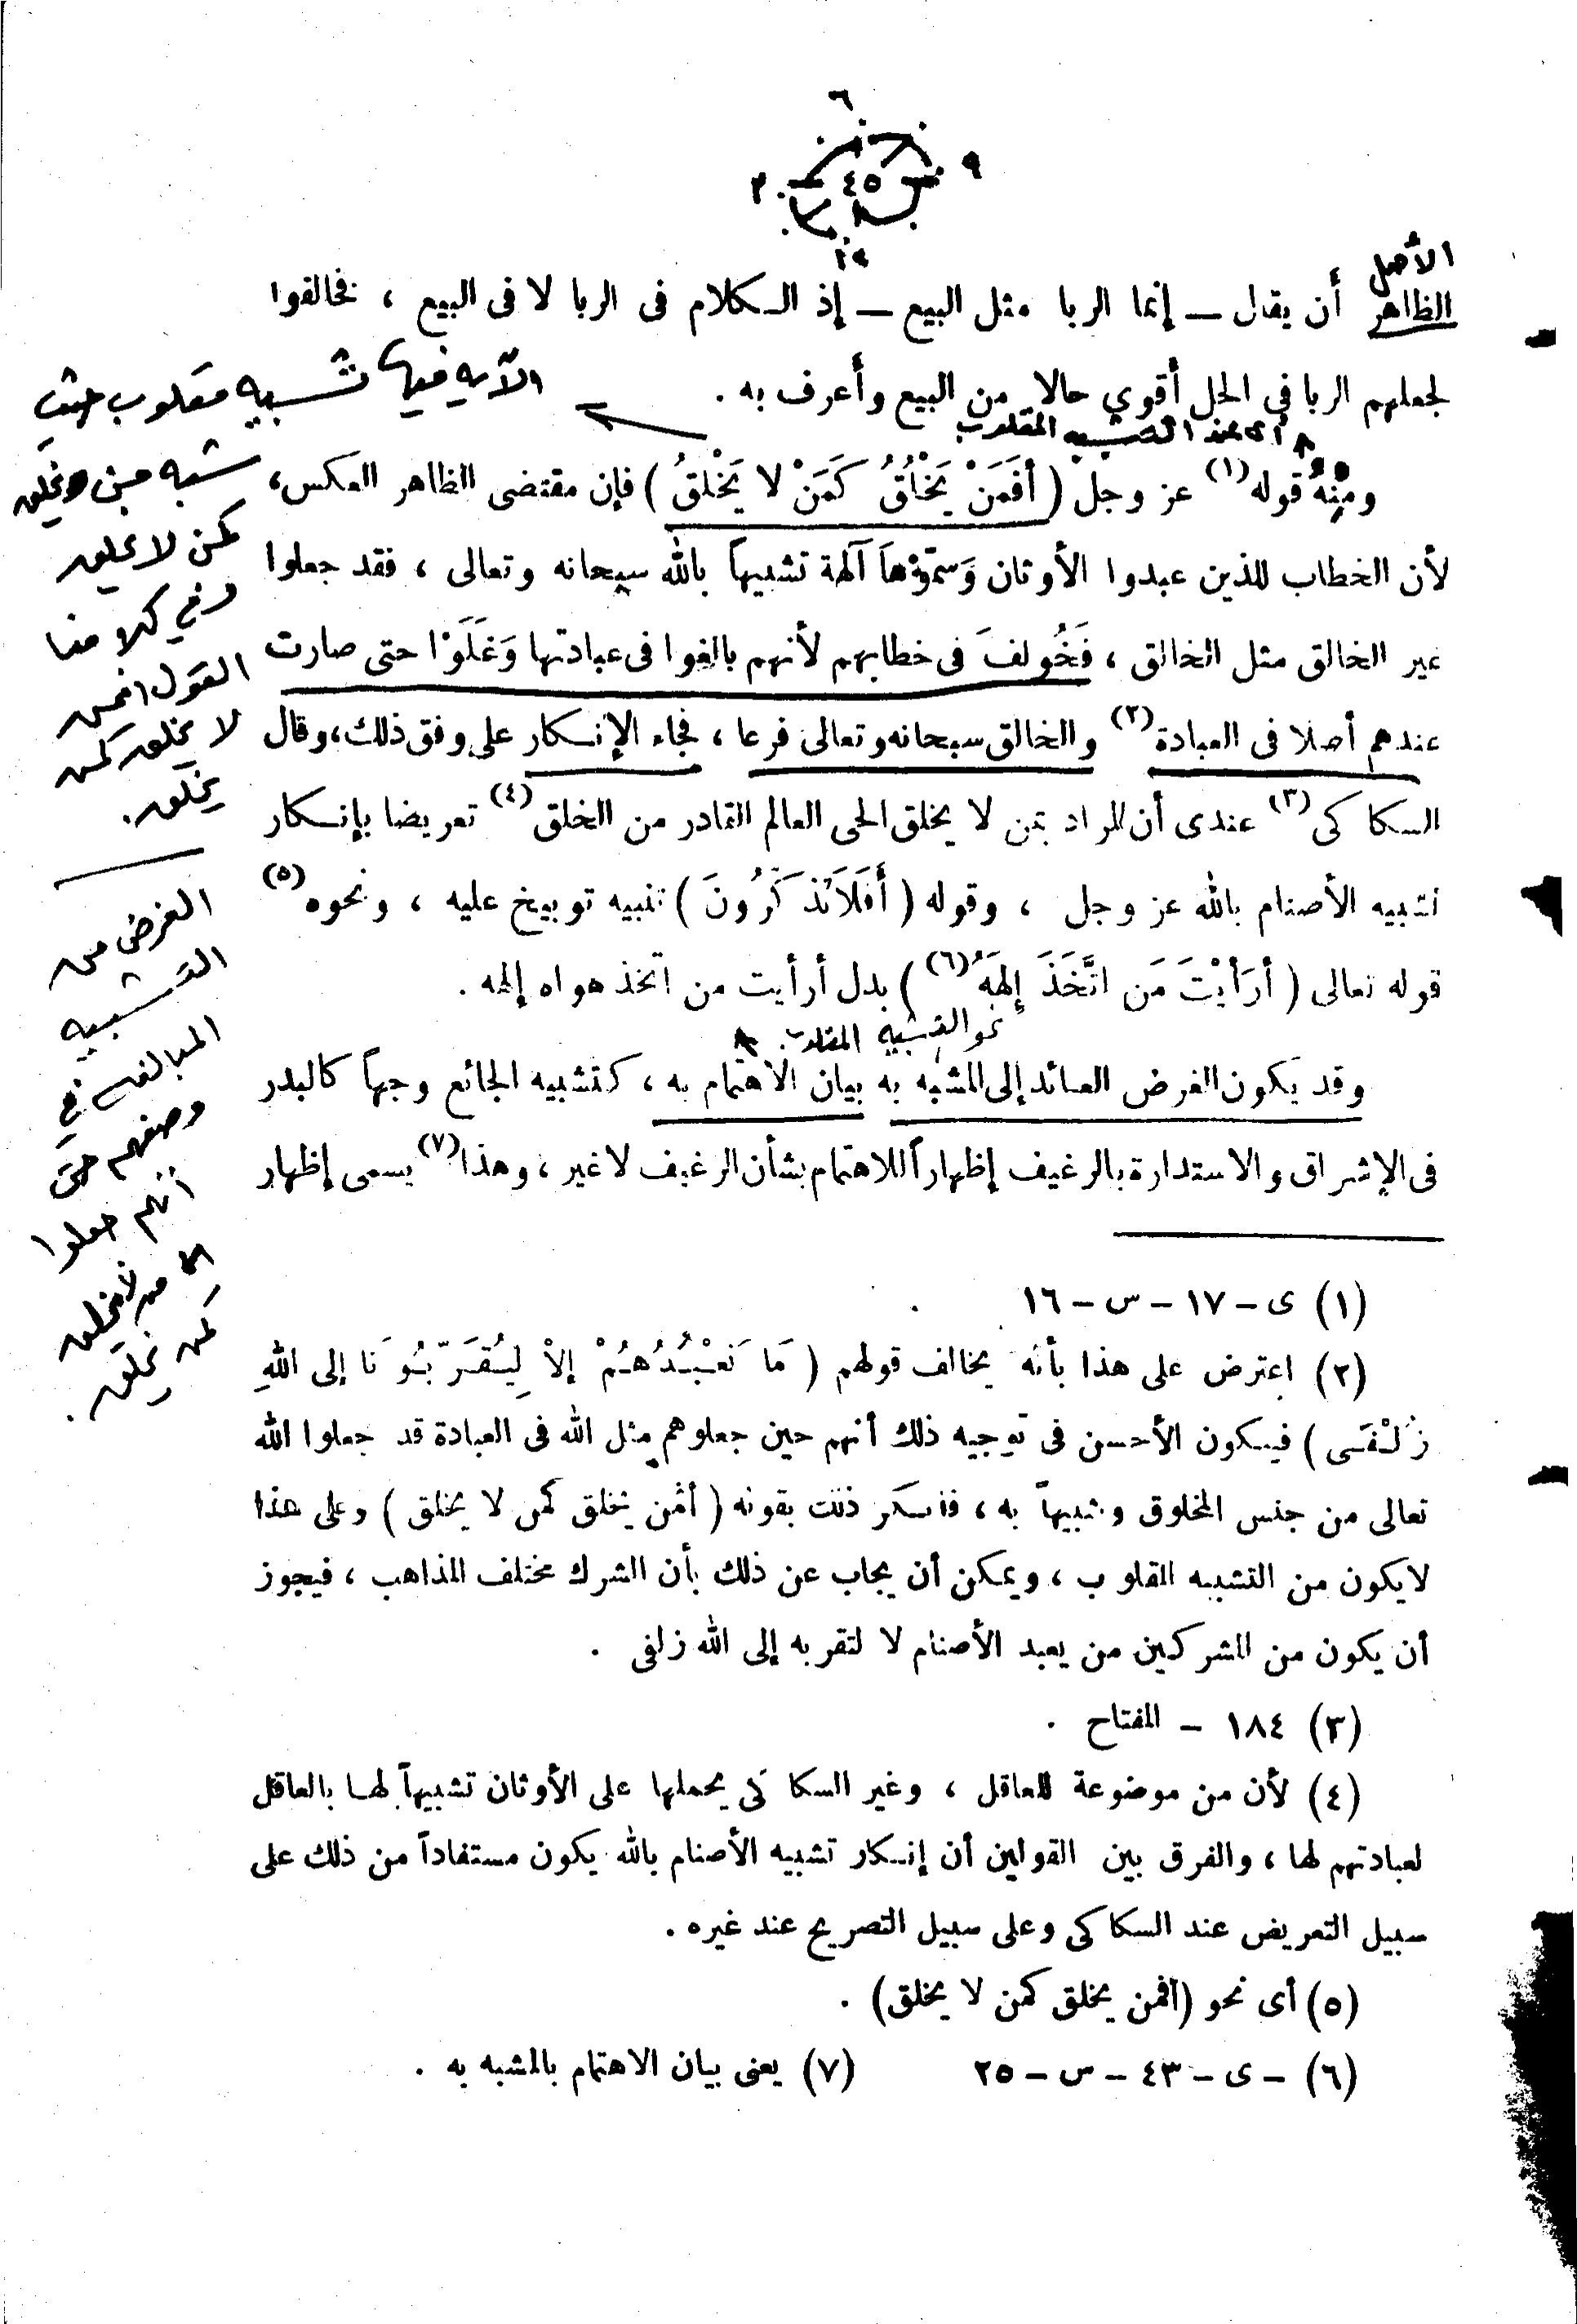 ٦
٩ ٤٥ ٣٠
الأصل
الظاهر أن يقال ــ إنما الربا مثل البيع ــ إذ الكلام فى الربا لا فى البيع ، فخالفوا
لجعلهم الربا فى الحل أقوى حالا من البيع وأعرف به .
الآية فيها تشبيه مقلوب حيث
أى عند التشبيه المقلوب
ومنه قوله (١) عز وجل ( أَفَمَنْ يَخْلُقُ كَمَنْ لا يَخْلقُ ) فإن مقتضى الظاهر العكس،
لأن الخطاب للذين عبدوا الأوثان وَسَمَّوْهَا آلهة تشبيهاً بالله سبحانه وتعالى ، فقد جعلوا
غير الخالق مثل الخالق ، فَخُولفَ فى خطابهم لأنهم بالغوا فى عبادتها وَغَلَوْا حتى صارت
عندهم أصلا فى العبادة (٢) والخالق سبحانه وتعالى فرعا ، فجاء الإنكار على وفق ذلك، وقال
السكاكى (٣) عندى أن المراد بمن لا يخلق الحى العالم القادر من الخلق (٤) تعريضا بإنكار
تشبيه الأصنام بالله عز وجل ، وقوله ( أَفَلَا تَذَكَّرُونَ ) تنبيه توبيخ عليه ، ونحوه (٥)
قوله تعالى ( أَرَأَيْتَ مَن اتَّخَذَ إِلهَهُ (٦) ) بدل أرأيت من اتخذ هواه إلهه .
نحو التشبيه المقلوب.
وقد يكون الغرض العائد إلى المشبه به بيان الاهتمام به ، كتشبيه الجائع وجهاً كالبدر
فى الإشراق والاستدارة بالرغيف إظهاراً للاهتمام بشأن الرغيف لا غير ، وهذا (٧) يسمى إظهار
شبه من يخلق
كمن لا يخلق
وفي كلامنا
القول افمن
لا يخلق كمن
يخلق.
الغرض من
التشبيه
المبالغة في
وصفهم حتى
انهم جعلوا
من لا يخلق
كمن يخلق.
(١) ى - ١٧ - س - ١٦
(٢) اعترض على هذا بأنه يخالف قولهم ( مَا نَعْبُدُهُمْ إلاْ لِيُقَرِّبُونَا إلى اللهِ
زُلْفَى ) فيكون الأحسن فى توجيه ذلك أنهم حين جعلوهم مثل الله فى العبادة قد جعلوا الله
تعالى من جنس المخلوق وشبيهاً به ، فأنكر ذلك بقوله ( أفمن يخلق كمن لا يخلق ) وعلى هذا
لا يكون من التشبيه المقلوب ، ويمكن أن يجاب عن ذلك بأن الشرك مختلف المذاهب ، فيجوز
أن يكون من المشركين من يعبد الأصنام لا لتقربه إلى الله زلفى .
(٣) ١٨٤ - المفتاح .
(٤) لأن من موضوعة للعاقل ، وغير السكاكى يحملها على الأوثان تشبيهاً لها بالعاقل
لعبادتهم لها ، والفرق بين القولين أن إنكار تشبيه الأصنام بالله يكون مستفاداً من ذلك على
سبيل التعريض عند السكاكى وعلى سبيل التصريح عند غيره .
(٥) أى نحو (أفمن يخلق كمن لا يخلق) .
(٦) - ى - ٤٣ - س - ٢٥ (٧) يعنى بيان الاهتمام بالمشبه به .